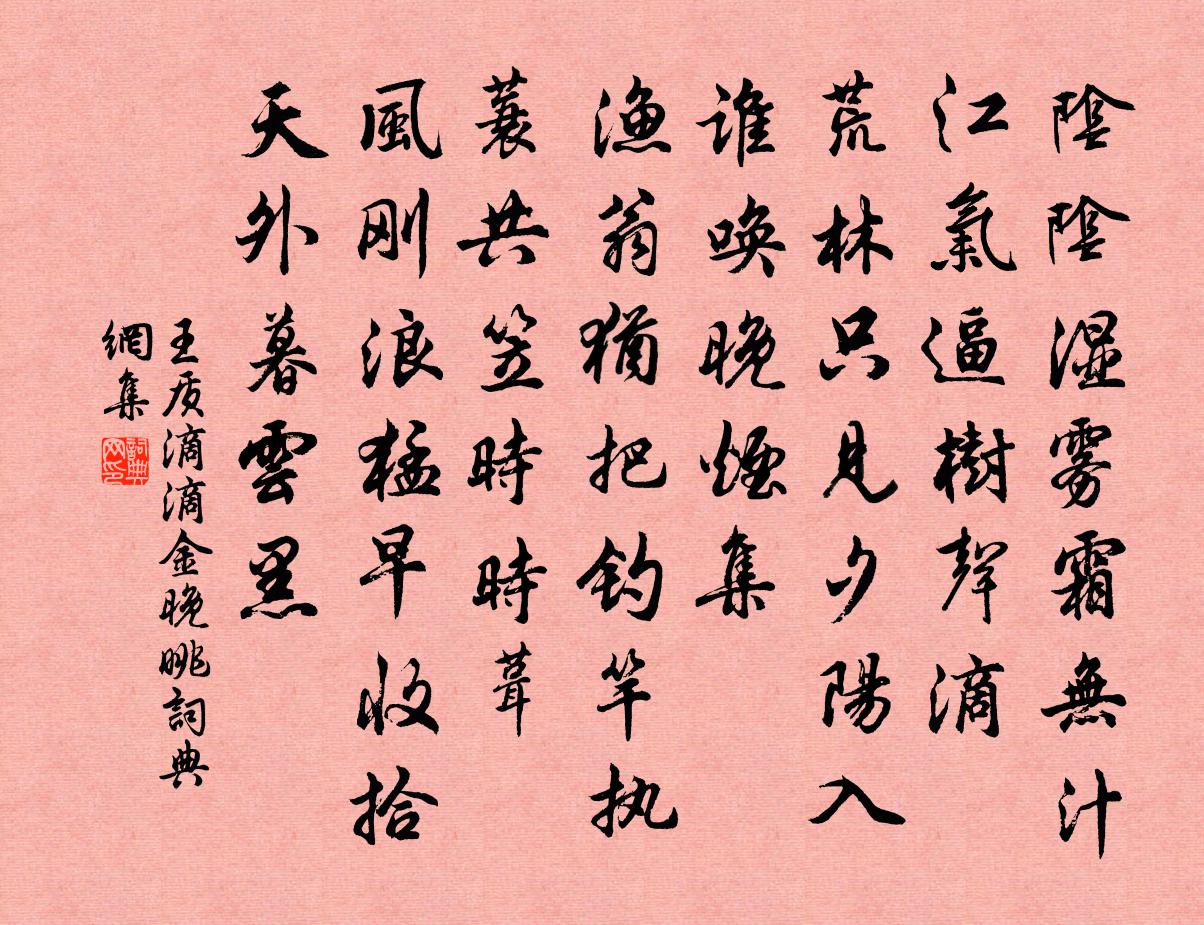 陰陰湿雾霜無汁
江氣逼樹聲滴
荒林只見夕陽入
谁唤晚煙集
漁翁猶把钓竿执
蓑共笠時時葺
風刚浪猛早收拾
天外暮雲黑
王质滴滴金晚眺詞典
網集